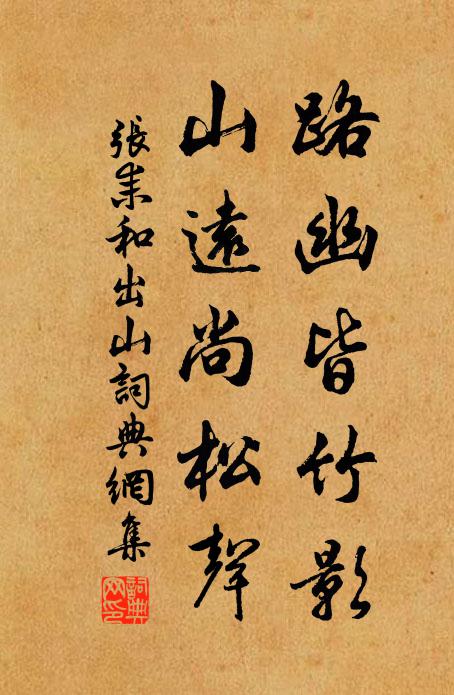 路幽皆竹影
山遠尚松聲
張耒和出山詞典網集
詞典網印